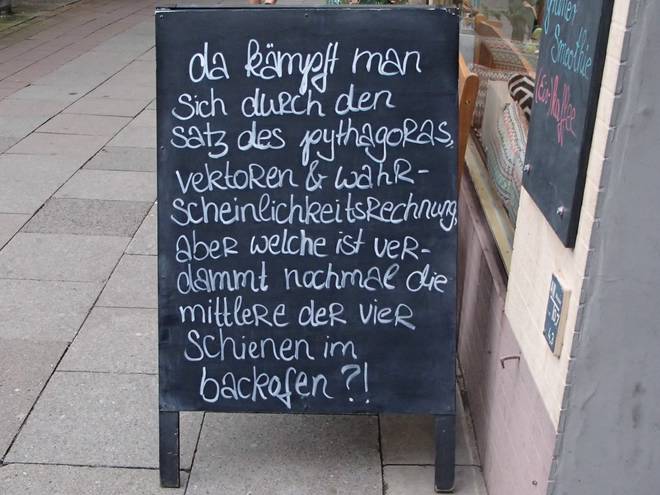 da kämpft man
sich durch den
satz des pythagoras,
vektoren & wahr-
scheinlichkeitsrechnung,
aber welche ist ver-
dammt nochmal die
mittlere der vier
schienen im
backofen ?!
Smoothie
Kaffee